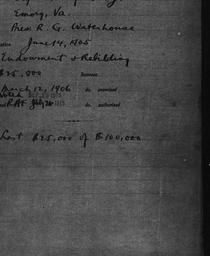 Emory, Va.
Pres R. G. Waterhouse
June 14, 1905
Endowment & Rebilding
$25,000
March 12, 1906 do. promised
do. authorized
Last $25,000 of $100,000